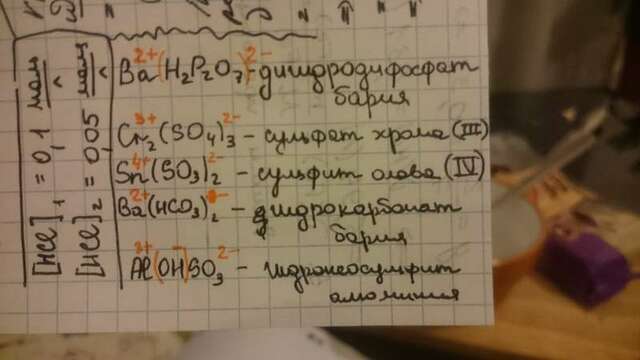 [HCl]₁ = 0,1 моль/л
[HCl]₂ = 0,05 моль/л
Ba²⁺(H₂P₂O₇)²⁻ - дигидродифосфат
бария
Cr₂³⁺(SO₄)₃²⁻ - сульфат хрома (III)
Sn⁴⁺(SO₃)₂²⁻ - сульфит олова (IV)
Ba²⁺(HCO₃)₂⁻ - гидрокарбонат
бария
Al³⁺(OH)⁻SO₃²⁻ - гидроксосульфит
алюминия